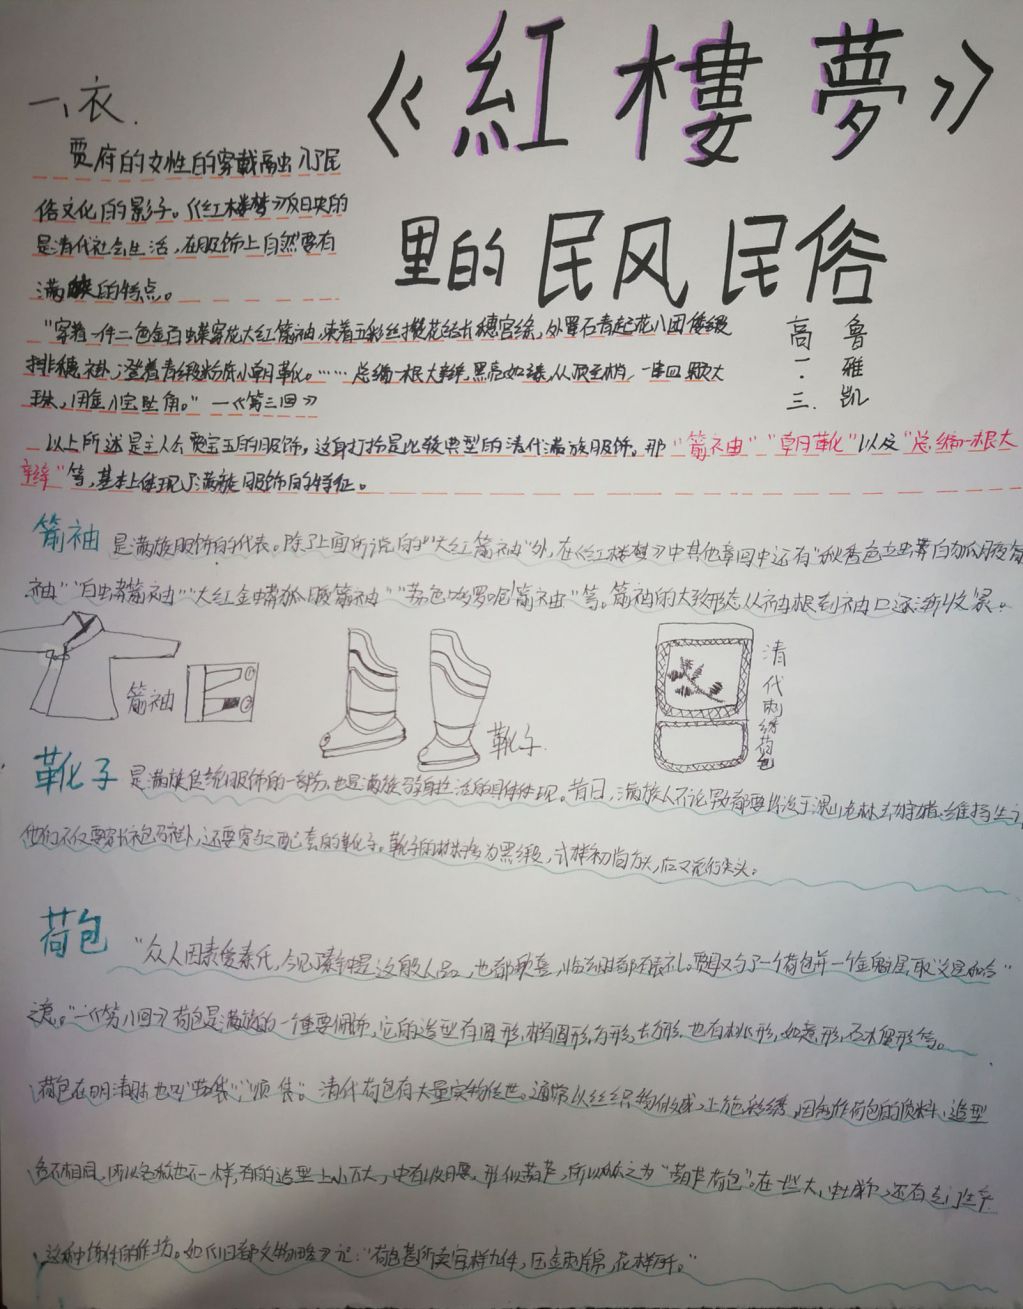 《紅樓夢》
里的民风民俗
高一.三.
鲁雅凯
一、衣.
贾府的女性的穿戴融入了民
俗文化的影子。《红楼梦》反映的
是清代社会生活，在服饰上自然要有
满族的特点。
"穿着一件二色金百蝶穿花大红箭袖，束着五彩丝攒花结长穗宫绦，外罩石青起花八团倭缎
排穗褂；登着青缎粉底小朝靴。……总编一根大辫，黑亮如漆，从顶至梢，一串四颗大
珠，用金八宝坠角。"—《第三回》
以上所述是主人公贾宝玉的服饰，这身打扮是比较典型的清代满族服饰。那"箭袖""朝靴"以及"总编一根大
辫"等，基本上体现了满族服饰的特征。
箭袖是满族服饰的代表。除了上面所说的"大红箭袖"外，在《红楼梦》中其他章回中还有"秋香色立蟒白狐腋箭
袖""白蟒箭袖""大红金蟒狐腋箭袖""荔色哆罗呢箭袖"等。箭袖的大致形态从袖根到袖口逐渐收紧。
箭袖
①
②
靴子.
清代刺绣荷包
靴子是满族传统服饰的一部分，也是满族骑射生活的具体体现。昔日，满族人不论男女都要出没于深山老林去狩猎、维持生计
他们不仅要穿长袍马褂，还要穿与之配套的靴子。靴子的材料为黑缎，式样初尚方头，后又流行尖头。
荷包"众人因素爱秦氏，今见了秦钟是这般人品，也都欢喜，临别时都有表礼。贾母又与了一个荷包并一个金魁星，取"文星和合"
之意。"—《第八回》荷包是满族的一个重要佩饰，它的造型有圆形，椭圆形，方形，长方形，也有桃形，如意形，石榴形等。
荷包在明清时也叫"茄袋"，"顺袋"。清代荷包有大量实物传世。通常以丝织物做成，上施彩绣，因制作荷包的质料、造型
各不相同，所以名称也不一样，有的造型上小下大，中有收腰，形似葫芦，所以称之为"葫芦荷包"。在一些大，中城市，还有专门生产
这种饰件的作坊。如《旧都文物略》记："荷包巷所卖官样九件，压金刺锦，花样